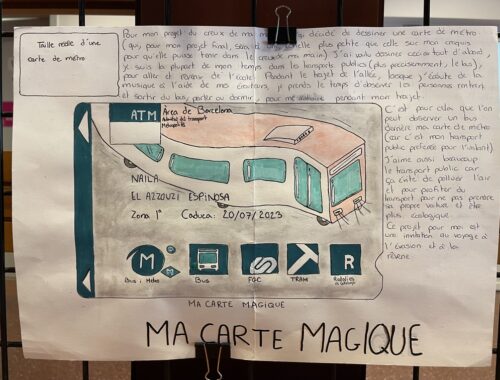 Taille réelle d'une
carte de métro
Pour mon projet du creux de ma main j'ai décidé de dessiner une carte de métro
(qui, pour mon projet final, sera à taille réelle plus petite que celle sur mon croquis
pour qu'elle puisse tenir dans le creux de ma main) J'ai voulu dessiner ceci tout d'abord
je suis la plupart de mon temps dans les transports publics (plus precisemment, le bus),
pour aller et revenir de l'école. Pendant le trajet de l'allée, lorsque j'écoute de la
musique à l'aide de mes écouteurs, je prends le temps d'observer les personnes rentrent
et sortir du bus, parler ou dormir, pendant mon trajet.
C'est pour cela que l'on
peut observer un bus
derrière ma carte de métro
(car c'est mon transport
public préférée pour l'instant)
J'aime aussi beaucoup
le transport public car
ça évite de polluer l'air
et pour profiter du
transport pour ne pas prendre
sa propre voiture et être
plus écologique.
Ce projet pour moi est
une invitation au voyage à
l'évasion et à la
rêverie
ATM
Àrea de Barcelona
Autoritat del transport
Metropolità
NAILA
EL AZZOUZI ESPINOSA
Zona 1ª Caduca: 20/07/2023
M
R
Bus i Metro Bus FGC TRAM Rodalies
MA CARTE MAGIQUE
MA CARTE MAGIQUE